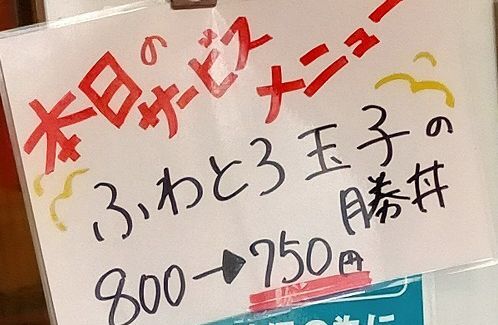 本日のサービスメニュー
ふわとろ玉子の
勝丼
800→750円